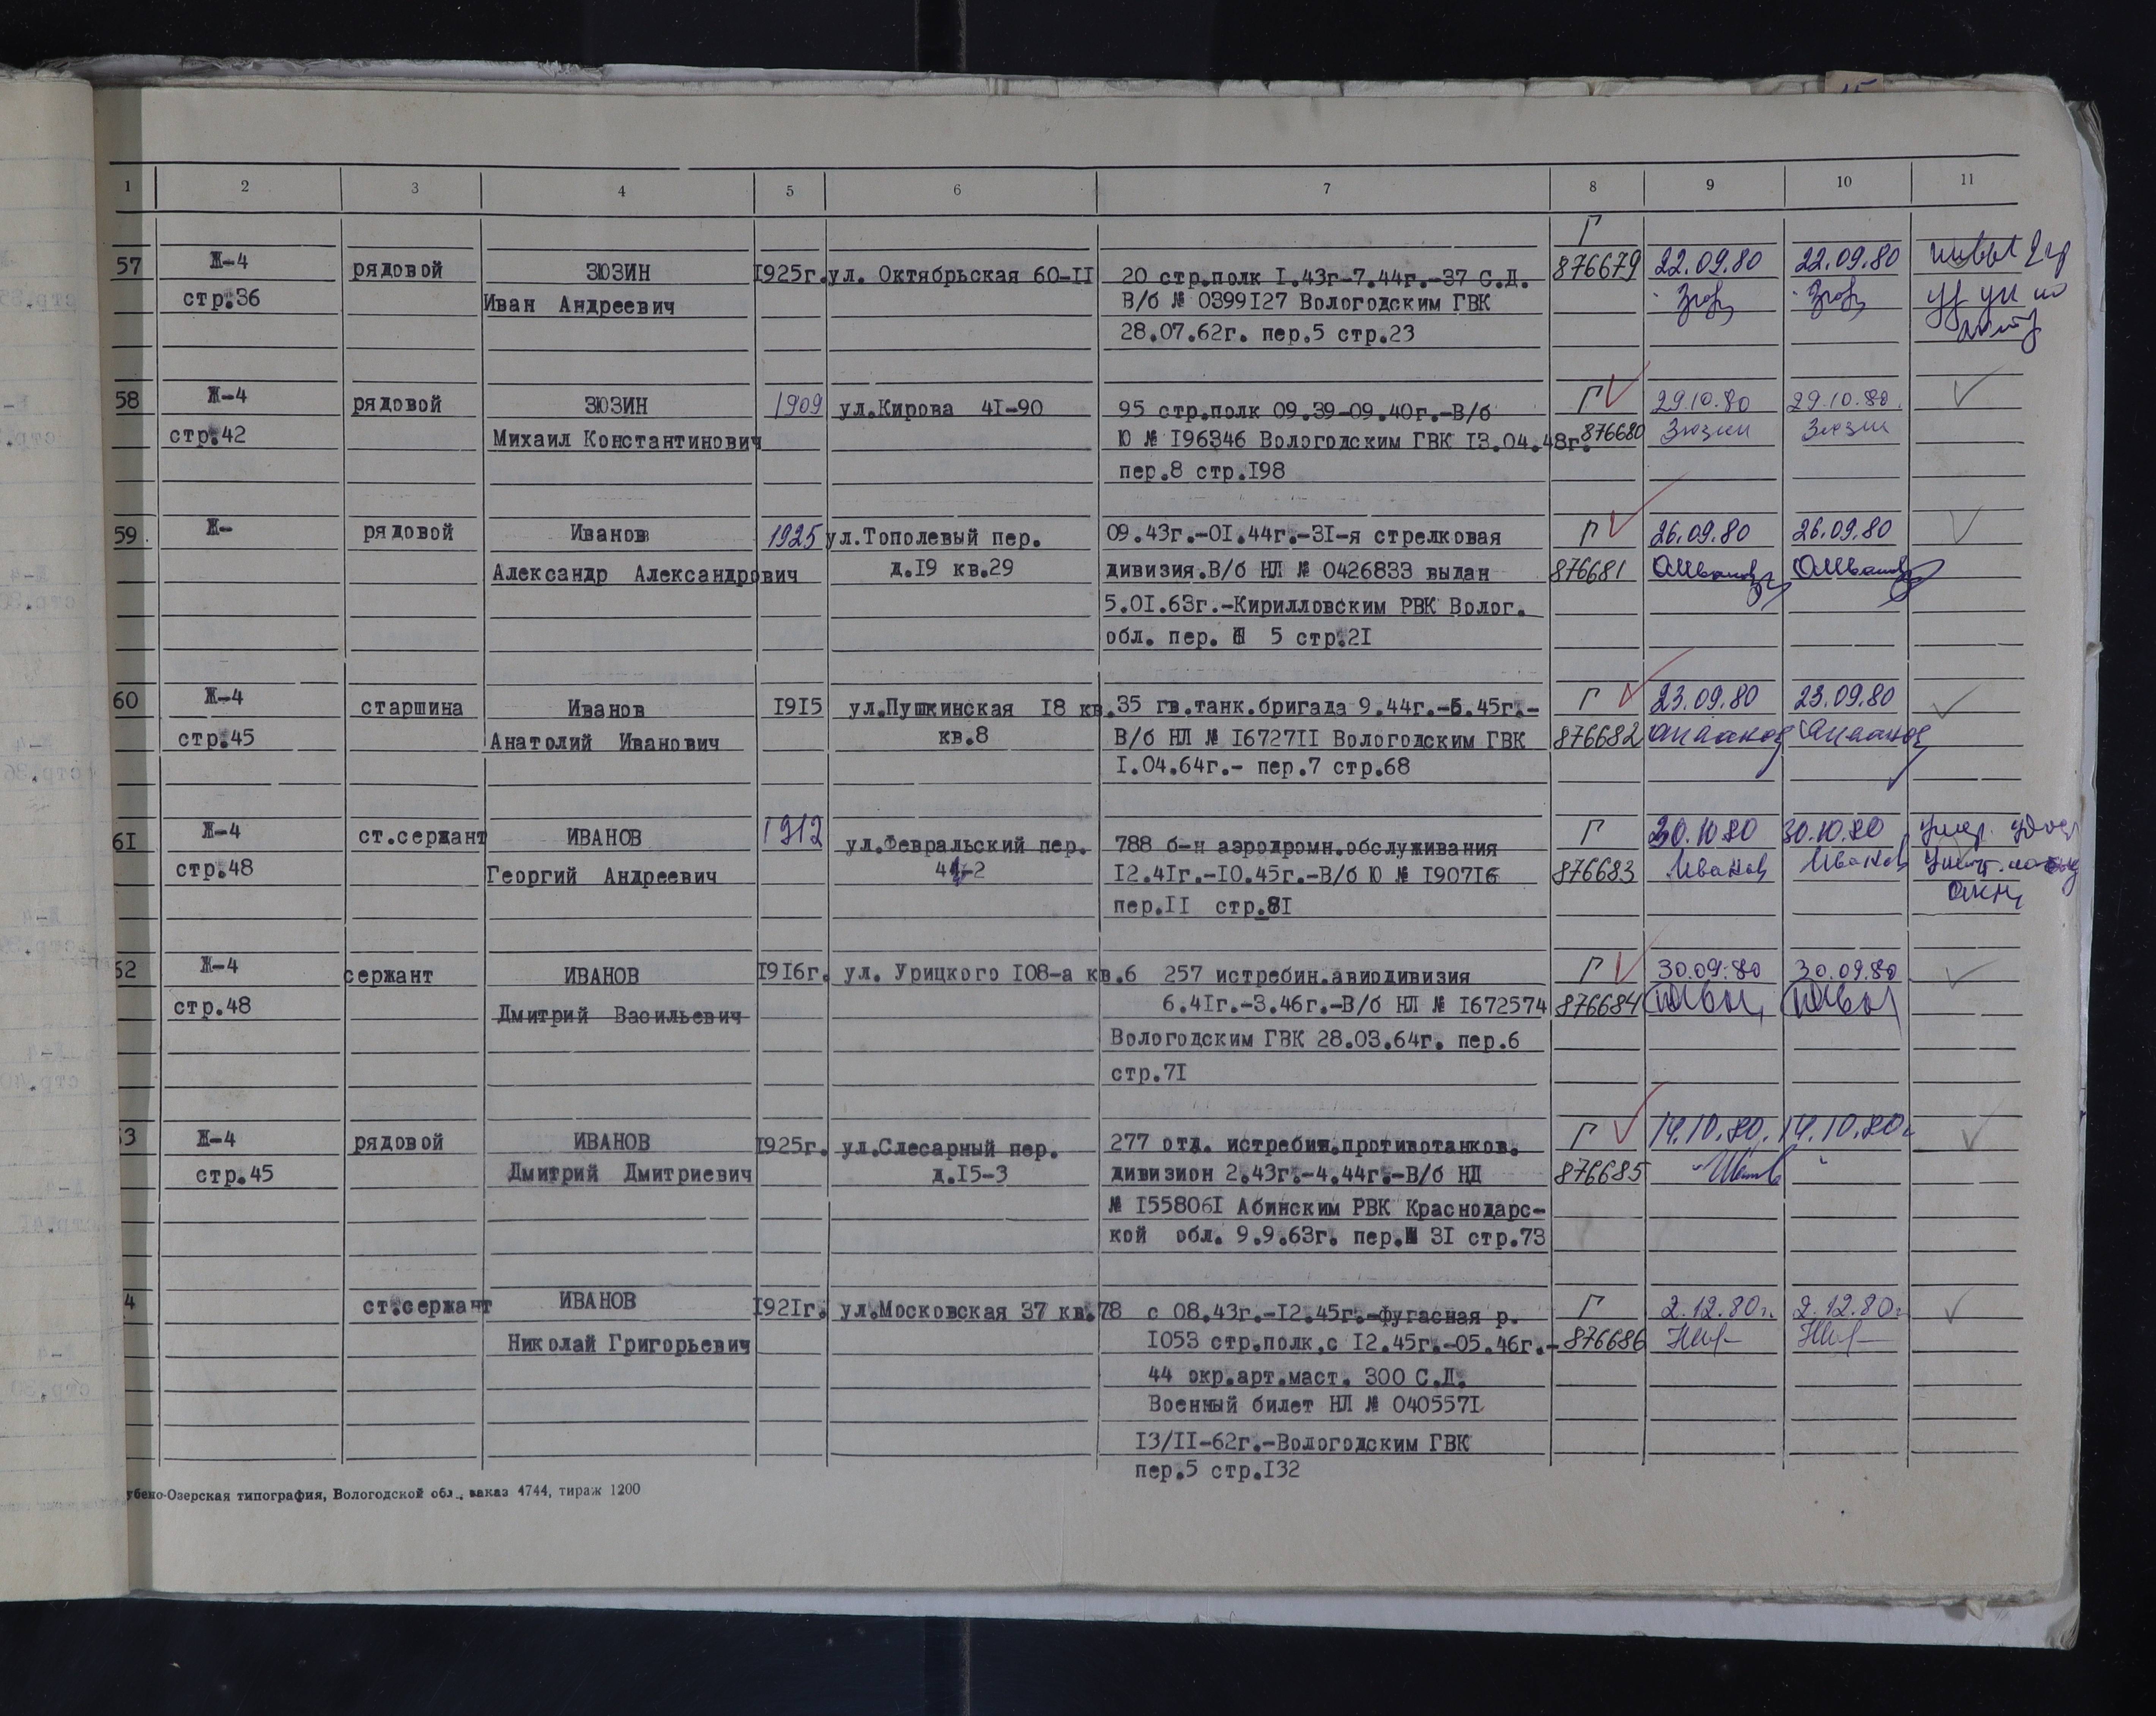 1 2 3 4 5 6 7 8 9 10 11
Г
57 Ж-4 рядовой ЗЮЗИН I925г. ул. Октябрьская 60-II 20 стр.полк I.43г-7.44г.-37 С.Д. 876679 22.09.80 22.09.80
стр.36 Иван Андреевич В/б № 0399I27 Вологодским ГВК
28.07.62г. пер.5 стр.23
58 Ж-4 рядовой ЗЮЗИН 1909 ул.Кирова 4I-90 95 стр.полк 09.39-09.40г.-В/б Г 29.10.80 29.10.80.
стр.42 Михаил Константинович Ю № I96346 Вологодским ГВК I3.04.48г. 876680 Зюзин Зюзин
пер.8 стр.I98
59 Ж- рядовой Иванов 1925 ул.Тополевый пер. 09.43г.-0I.44г.-3I-я стрелковая Г 26.09.80 26.09.80
Александр Александрович д.I9 кв.29 дивизия.В/б НЛ № 0426833 выдан 876681
5.0I.63г.-Кирилловским РВК Волог.
обл. пер. 5 стр.2I
60 Ж-4 старшина Иванов I9I5 ул.Пушкинская I8 кв. 35 гв.танк.бригада 9.44г.-5.45г.- Г 23.09.80 23.09.80
стр.45 Анатолий Иванович кв.8 В/б НЛ № I6727II Вологодским ГВК 876682
I.04.64г.- пер.7 стр.68
6I Ж-4 ст.сержант ИВАНОВ 1912 ул.Февральский пер. 788 б-н аэродромн.обслуживания Г 30.10.80 30.10.80
стр.48 Георгий Андреевич I2.4Iг.-I0.45г.-В/б Ю № I907I6 876683 Иванов Иванов
пер.II стр.8I
62 Ж-4 сержант ИВАНОВ I9I6г. ул. Урицкого I08-а кв.6 257 истребин.авиодивизия Г 30.09.80 30.09.80
стр.48 Дмитрий Васильевич 6.4Iг.-3.46г.-В/б НЛ № I672574 876684
Вологодским ГВК 28.03.64г. пер.6
стр.7I
3 Ж-4 рядовой ИВАНОВ I925г. ул.Слесарный пер. 277 отд. истребин.противотанков. Г 14.10.80. 14.10.80г
стр.45 Дмитрий Дмитриевич д.I5-3 дивизион 2.43г.-4.44г.-В/б НД 876685
№ I55806I Абинским РВК Краснодарс-
кой обл. 9.9.63г. пер.№ 3I стр.73
4 ст.сержант ИВАНОВ I92Iг. ул.Московская 37 кв.78 с 08.43г.-I2.45г.-фугасная р. Г 2.12.80г. 2.12.80г
Николай Григорьевич I053 стр.полк,с I2.45г.-05.46г.- 876686
44 окр.арт.маст. 300 С.Д.
Военный билет НЛ № 040557I
I3/II-62г.-Вологодским ГВК
пер.5 стр.I32
убено-Озерская типография, Вологодской обл., заказ 4744, тираж 1200